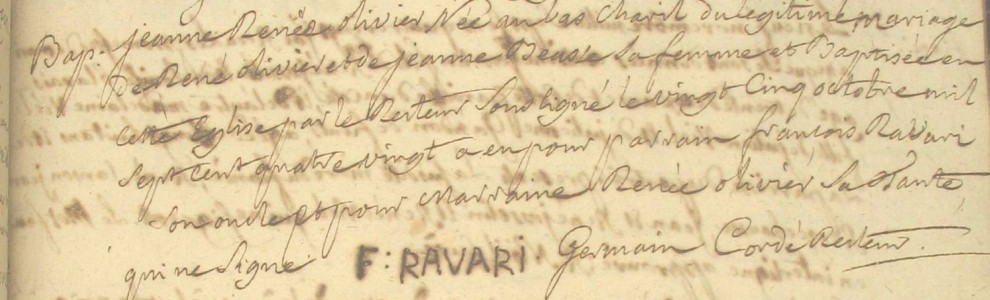 Bap: jeanne Renée olivier Née au bas Charil du legitime mariage
De René olivier et de jeanne Béasse sa femme et Baptisée en
cette Eglise par le Recteur Soussigné le vingt Cinq octobre mil
Sept cent quatre vingt a eu pour parrain francois Ravari
Son oncle et pour Marraine Renée olivier Sa Tante
qui ne Signe. F: RAVARI. Germain Cordé Recteur.